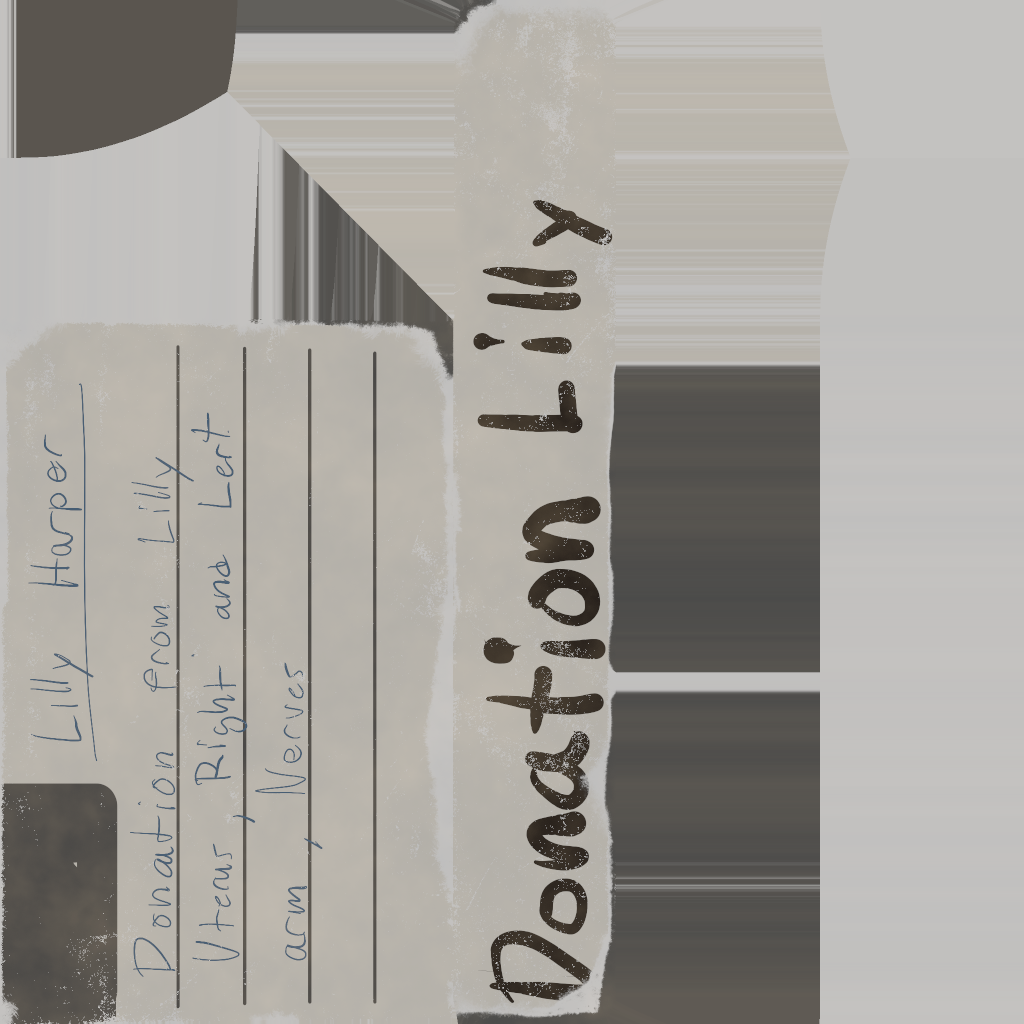 Lilly Harper
Donation from Lilly
Uterus, Right and Lert
arm, Nerves
Donation Lilly